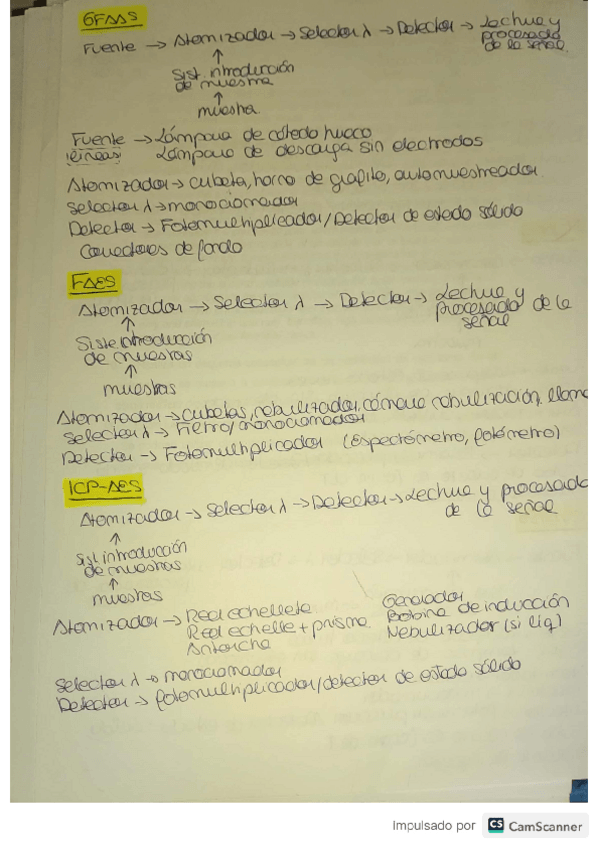 GFAAS
Fuente → Atomizador → Selector λ → Detector → Lectura y
procesado
de la señal.
↑
Sist. introducción
de muestra
↑
muestra.
Fuente → Lámpara de cátodo hueco
(líneas) Lámpara de descarga sin electrodos
Atomizador → cubeta, horno de grafito, automuestreador.
Selector λ → monocromador
Detector → Fotomultiplicador / Detector de estado sólido
Correctores de fondo
FAES
Atomizador → Selector λ → Detector → Lectura y
procesado de la
señal
↑
Siste introducción
de muestras
↑
muestras
Atomizador → cubetas, nebulizador, cámara nebulización, llama
Selector λ → Filtro/monocromador
Detector → Fotomultiplicador (Espectrómetro, fotómetro)
ICP-AES
Atomizador → Selector λ → Detector → Lectura y procesado
de la señal
↑
Sist introducción
de muestras
↑
muestras
Atomizador → Red echellete
Red echelle + prisma.
Antorcha
Generador
Bobina de inducción
Nebulizador (si liq)
Selector λ → monocromador
Detector → fotomultiplicador/detector de estado sólido
Impulsado por CS CamScanner